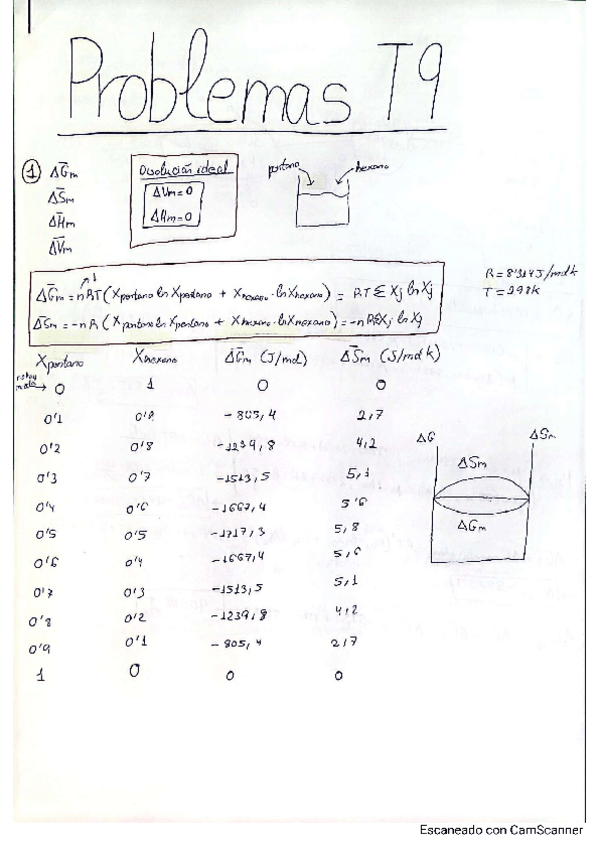 Problemas T9
① ΔG̅m
ΔS̅m
ΔH̅m
ΔV̅m
Disolución ideal
ΔVm = 0
ΔHm = 0
pentano
hexano
ΔG̅m = nRT (Xpentano ln Xpentano + Xhexano · ln Xhexano) = RT Σ Xj ln Xj
ΔS̅m = -nR (Xpentano ln Xpentano + Xhexano · ln Xhexano) = -nRΣXj ln Xj
R = 8'314 J/mol k
T = 298k
Xpentano Xhexano ΔG̅m (J/mol) ΔS̅m (J/mol k)
0 1 0 0
0'1 0'9 -805,4 2,7
0'2 0'8 -1239,8 4,2
0'3 0'7 -1513,5 5,1
0'4 0'6 -1667,4 5'6
0'5 0'5 -1717,3 5,8
0'6 0'4 -1667,4 5,6
0'7 0'3 -1513,5 5,1
0'8 0'2 -1239,8 4,2
0'9 0'1 -805,4 2,7
1 0 0 0
ΔG ΔSm
ΔSm
ΔGm
Escaneado con CamScanner